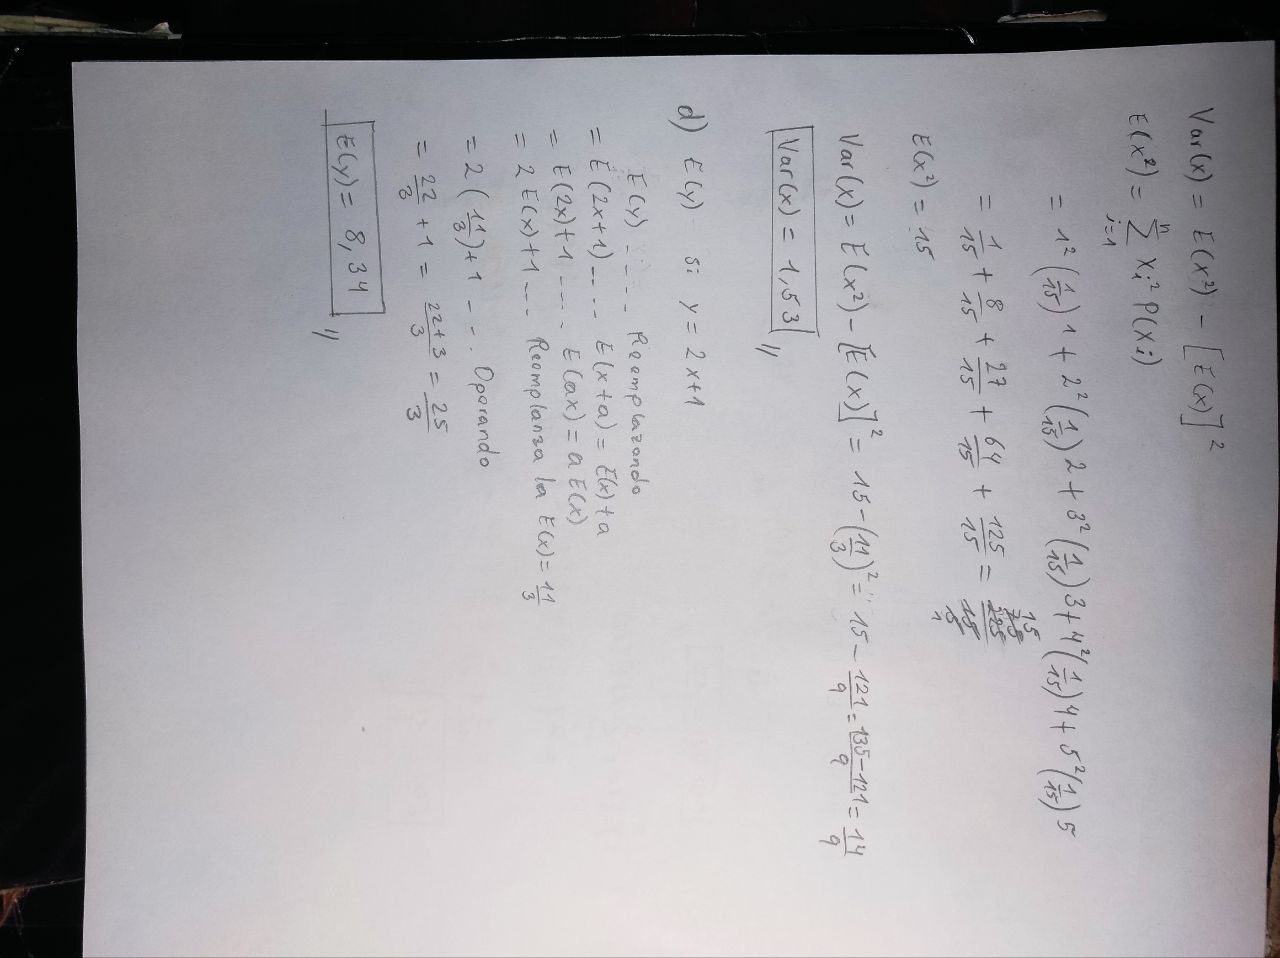 Var(x) = E(x²) - [E(x)]²
E(x²) = n∑i=1 xi² P(xi)
= 1² (1/15) 1 + 2² (1/15) 2 + 3² (1/15) 3 + 4² (1/15) 4 + 5² (1/15) 5
= 1/15 + 8/15 + 27/15 + 64/15 + 125/15 = 225/15
15
1
E(x²) = 15
Var(x) = E(x²) - [E(x)]² = 15 - (11/3)² = 15 - 121/9 = 135-121/9 = 14/9
Var(x) = 1,53 //
d) E(y) si y = 2x+1
E(y) .... Reemplazando
= E(2x+1) .... E(x+a) = E(x)+a
= E(2x)+1 .... E(ax) = a E(x)
= 2 E(x)+1 ... Reemplanza la E(x) = 11/3
= 2 (11/3)+1 ... Operando
= 22/3 + 1 = 22+3/3 = 25/3
E(y) = 8,34 //